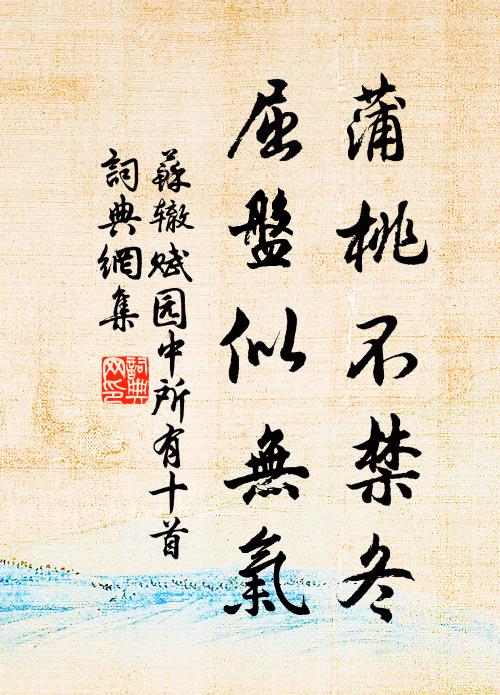 蒲桃不禁冬
屈盤似無氣
蘇辙赋园中所有十首
詞典網集
詞典网印